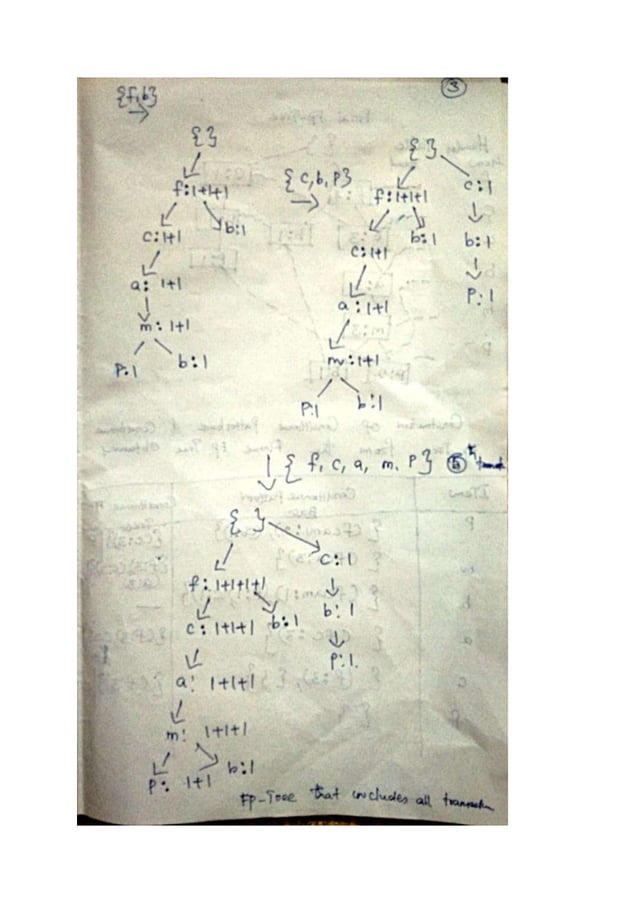 {f,b}
3
{ }
f:1+1+1
c:1+1
b:1
a: 1+1
m: 1+1
P:1
b:1
{c, b, P}
{ }
f:1+1+1
c:1
c:1+1
b:1
b:1
P:1
a:1+1
m:1+1
P:1
b:1
{ f, c, a, m, P}
{ }
f:1+1+1+1
c:1
c:1+1+1
b:1
b:1
P:1.
a: 1+1+1
m: 1+1+1
P: 1+1
b:1
FP-Tree that includes all